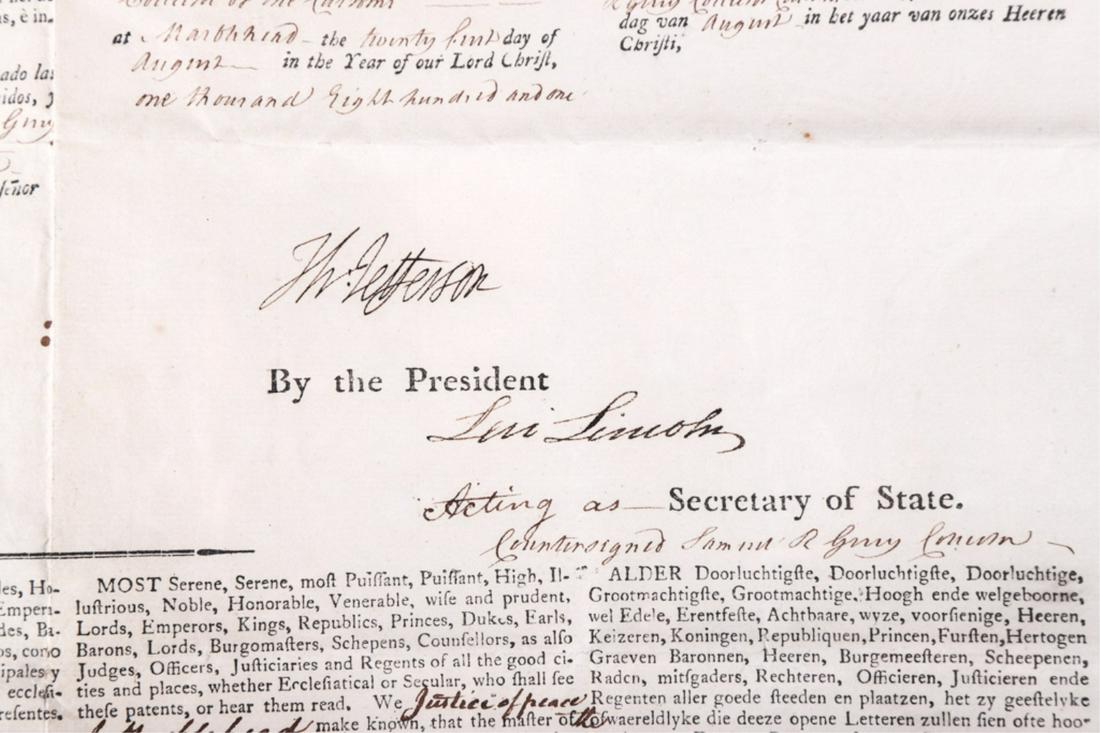 as, è in.
ado las
idos, y
Gerry
señor
Collector of the Customs
at Marblehead the twenty first day of
August in the Year of our Lord Chriſt,
one thousand Eight hundred and one
dag van August in het yaar van onzes Heeren
Chriſti,
Th. Jefferson
By the President
Levi Lincoln
Acting as Secretary of State.
Countersigned Samuel R Gerry
des, Ho-
Emperi-
des, Ba-
os, como
cipales y
ecclesi-
resentes.
MOST Serene, Serene, moſt Puiſſant, Puiſſant, High, Il-
luſtrious, Noble, Honorable, Venerable, wiſe and prudent,
Lords, Emperors, Kings, Republics, Princes, Dukes, Earls,
Barons, Lords, Burgomaſters, Schepens, Counſellors, as alſo
Judges, Officers, Juſticiaries and Regents of all the good ci-
ties and places, whether Eccleſiatical or Secular, who ſhall ſee
theſe patents, or hear them read. We Justice of peace
Marblehead make known, that the maſter of the
ALDER Doorluchtigſte, Doorluchtigſte, Doorluchtige,
Grootmachtigſte, Grootmachtige, Hoogh ende welgeboorne,
wel Edele, Erentfeſte, Achtbaare, wyze, voorſienige, Heeren,
Keizeren, Koningen, Republiquen, Princen, Furſten, Hertogen
Graeven Baronnen, Heeren, Burgemeeſteren, Scheepenen,
Raden, mitſgaders, Rechteren, Officieren, Juſticieren ende
Regenten aller goede ſteeden en plaatzen, het zy geeſtelyke
of waereldlyke die deeze opene Letteren zullen ſien ofte hoo-